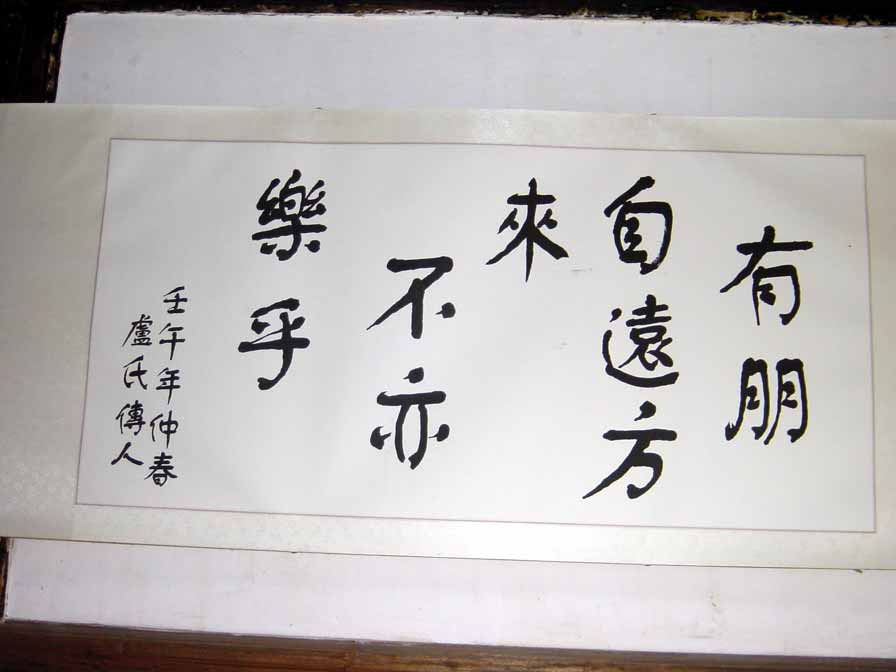 有朋
自遠方
來
不亦
樂乎
壬午年仲春
盧氏傳人